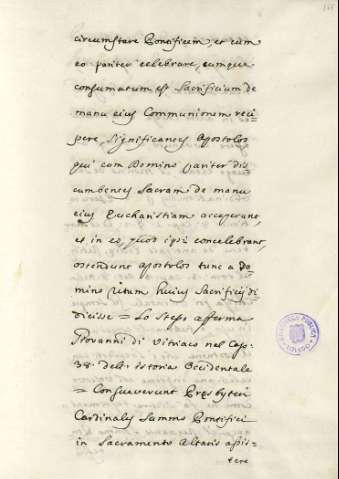 circumstare Pontificem, et cum
eo pariter celebrare, cumque
consumatum est Sacrificium de
manu eius Communionem reci
pere, significantes Apostolos
qui com Domino pariter dis
cumbentes Sacram de manu
eius Eucharistiam acceperunt,
et in eo, quod ipsi concelebrant,
ostendunt Apostolos tunc a Do
mino ritum huius Sacrificij di
dicisse = Lo stesso afferma
Giovanni di Vitriaco nel Cap.
38. dell' istoria Occidentale
= Consueverunt Presbyteri
Cardinales Summo Pontifici
in Sacramento Altaris assis=
tere